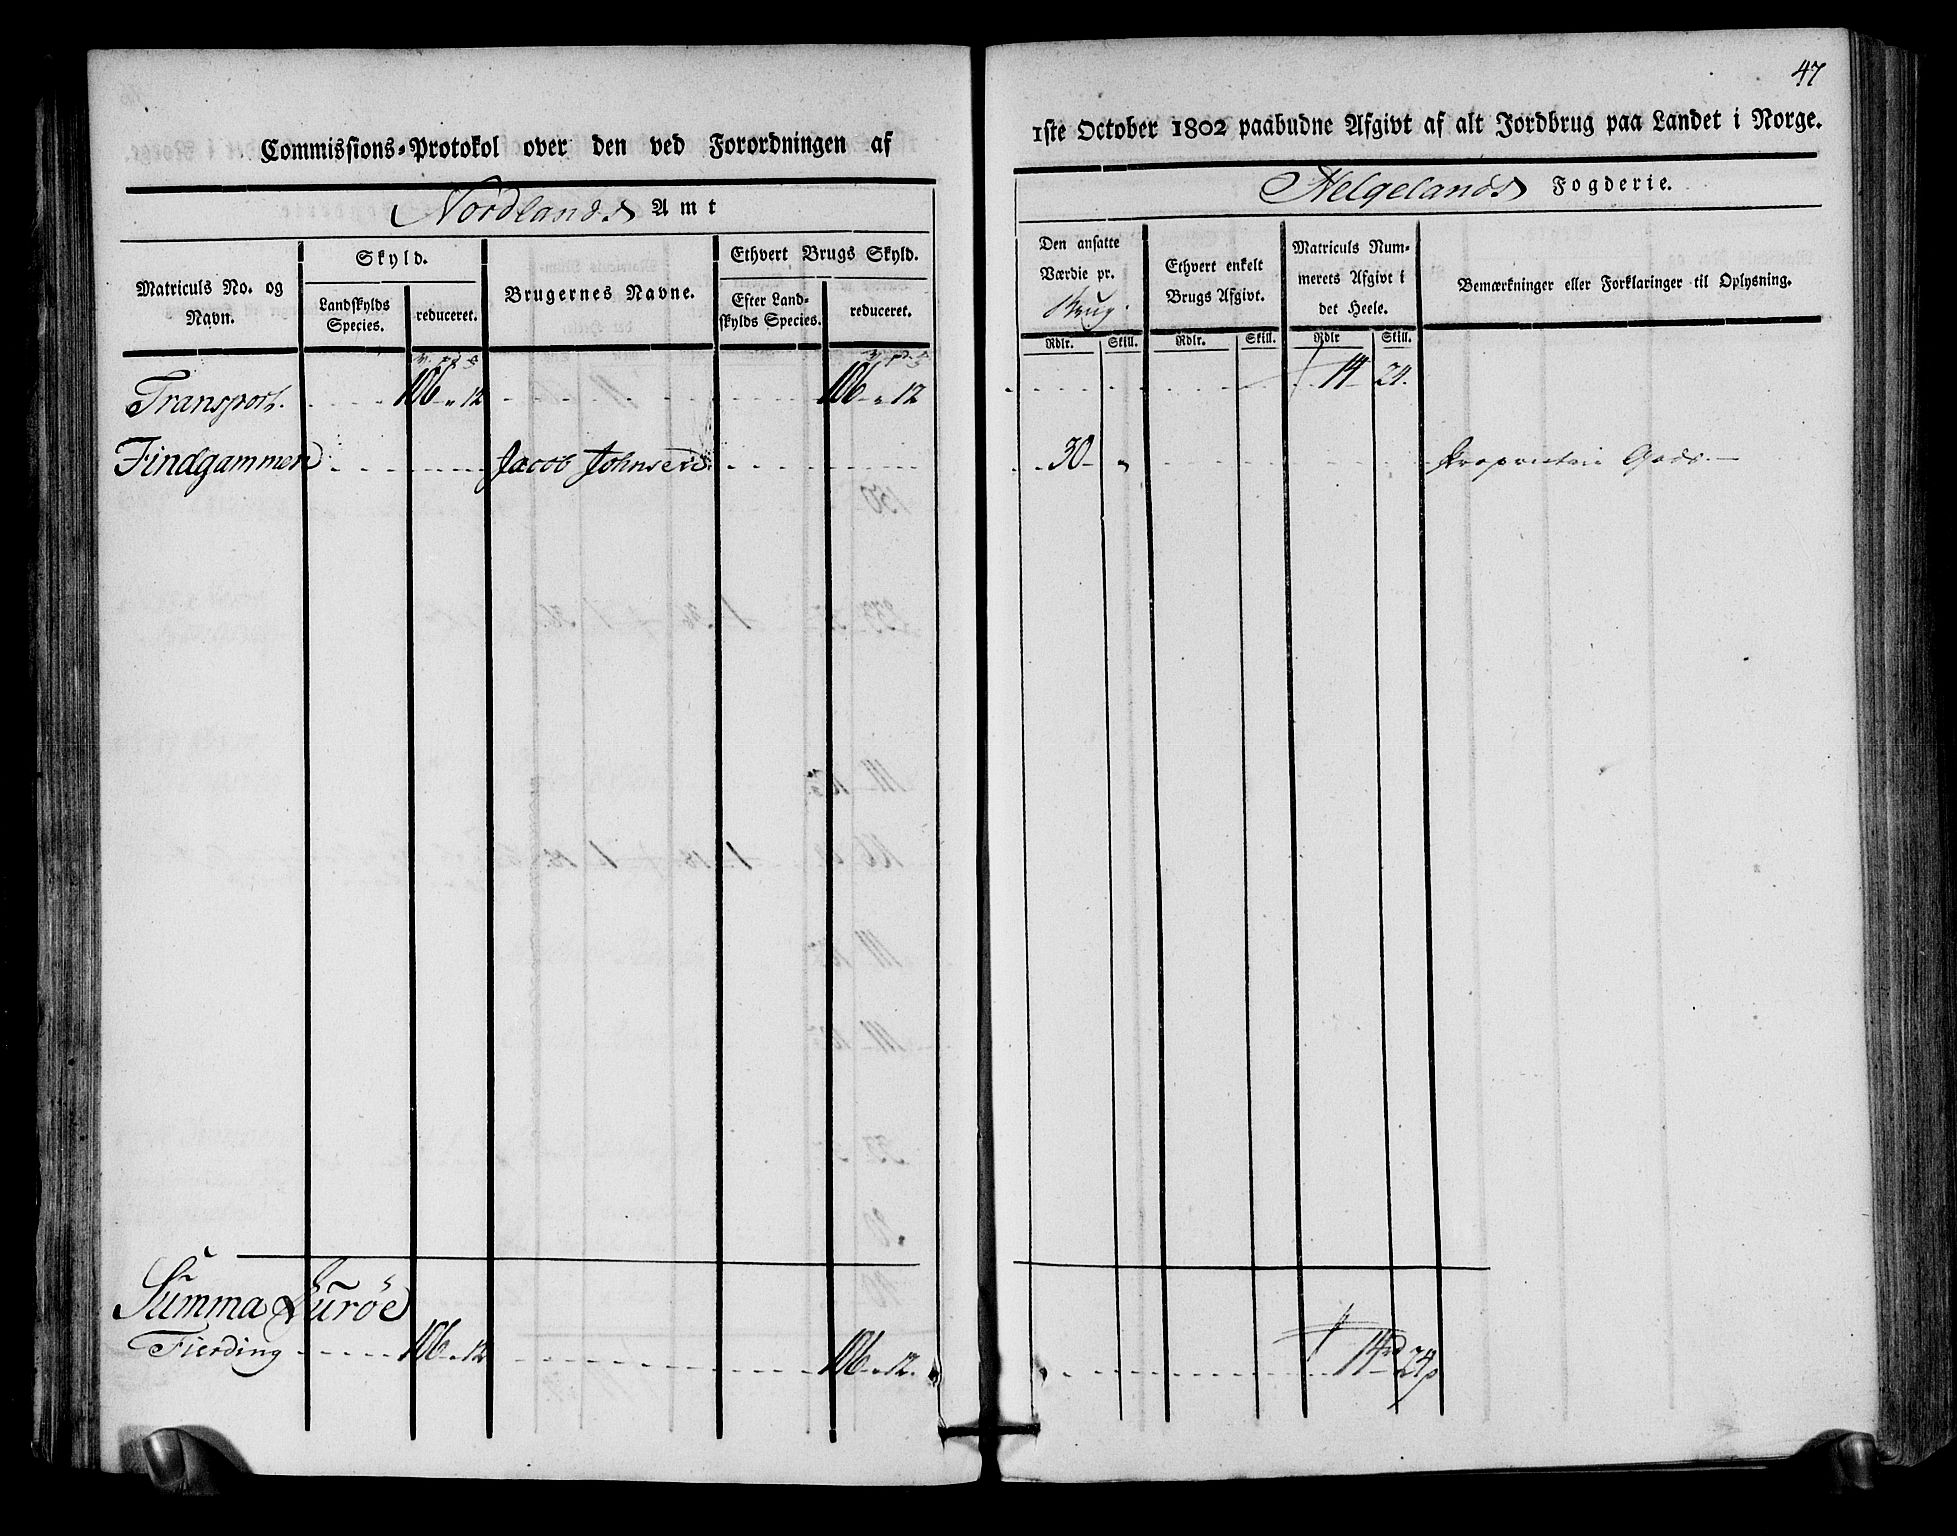 47
Commissions-Protokol over den ved Forordningen af
1ste October 1802 paabudne Afgivt af alt Jordbrug paa Landet i Norge.
Nordlands Amt
Helgelands Fogderie.
Matriculs No. og Navn.
Skyld.
Landskylds Species.
reduceret.
Brugernes Navne.
Ethvert Brugs Skyld.
Efter Landskylds Species.
reduceret.
Den ansatte Værdie pr. Brug.
Rdlr. Skill.
Ethvert enkelt Brugs Afgivt.
Rdlr. Skill.
Matriculs Nummerets Afgivt i det Heele.
Rdlr Skill.
Bemærkninger eller Forklaringer til Oplysning.
Transport. 106 " 12 106 " 12 14 24.
Findgammen Jacob Johnsen 30 " Proprietair Gods.
Summa Lurøe
Fierding 106 " 12 106 " 12. 14 24